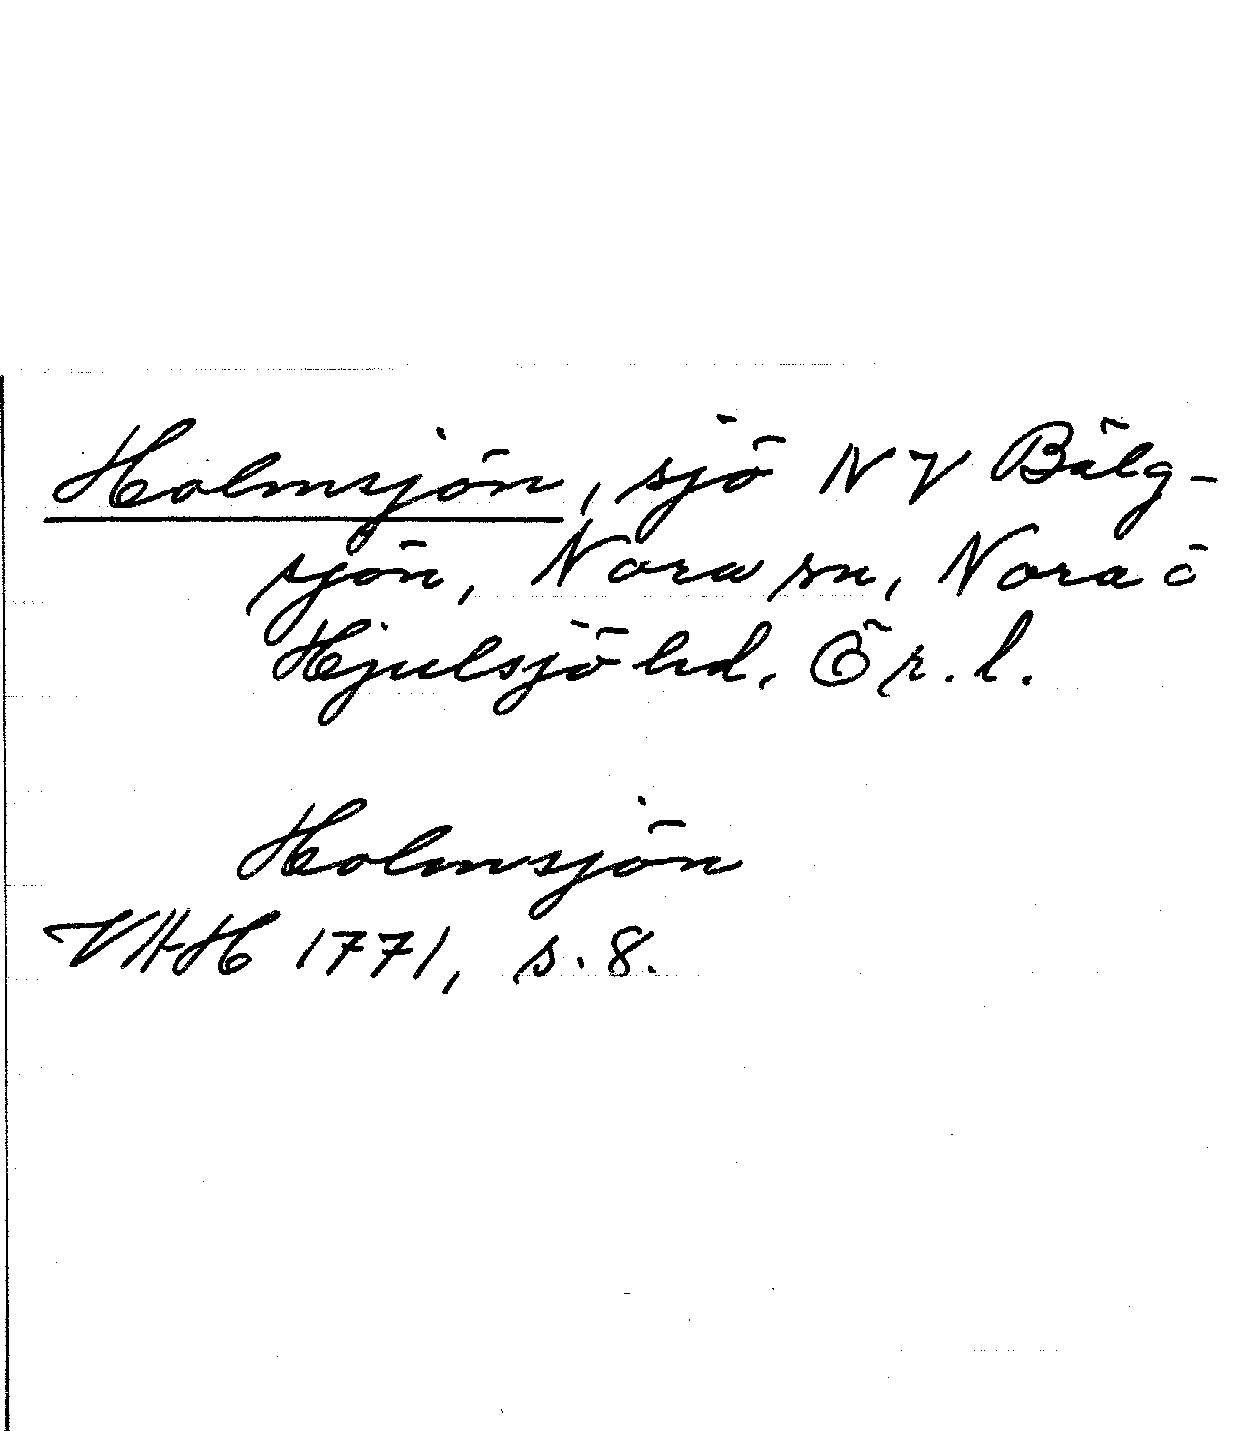 Holmsjön, sjö NV Bälg-
sjön, Nora sn, Nora o
Hjulsjö hd, Ör. l.
Holmsjön
VHH 1771, s. 8.